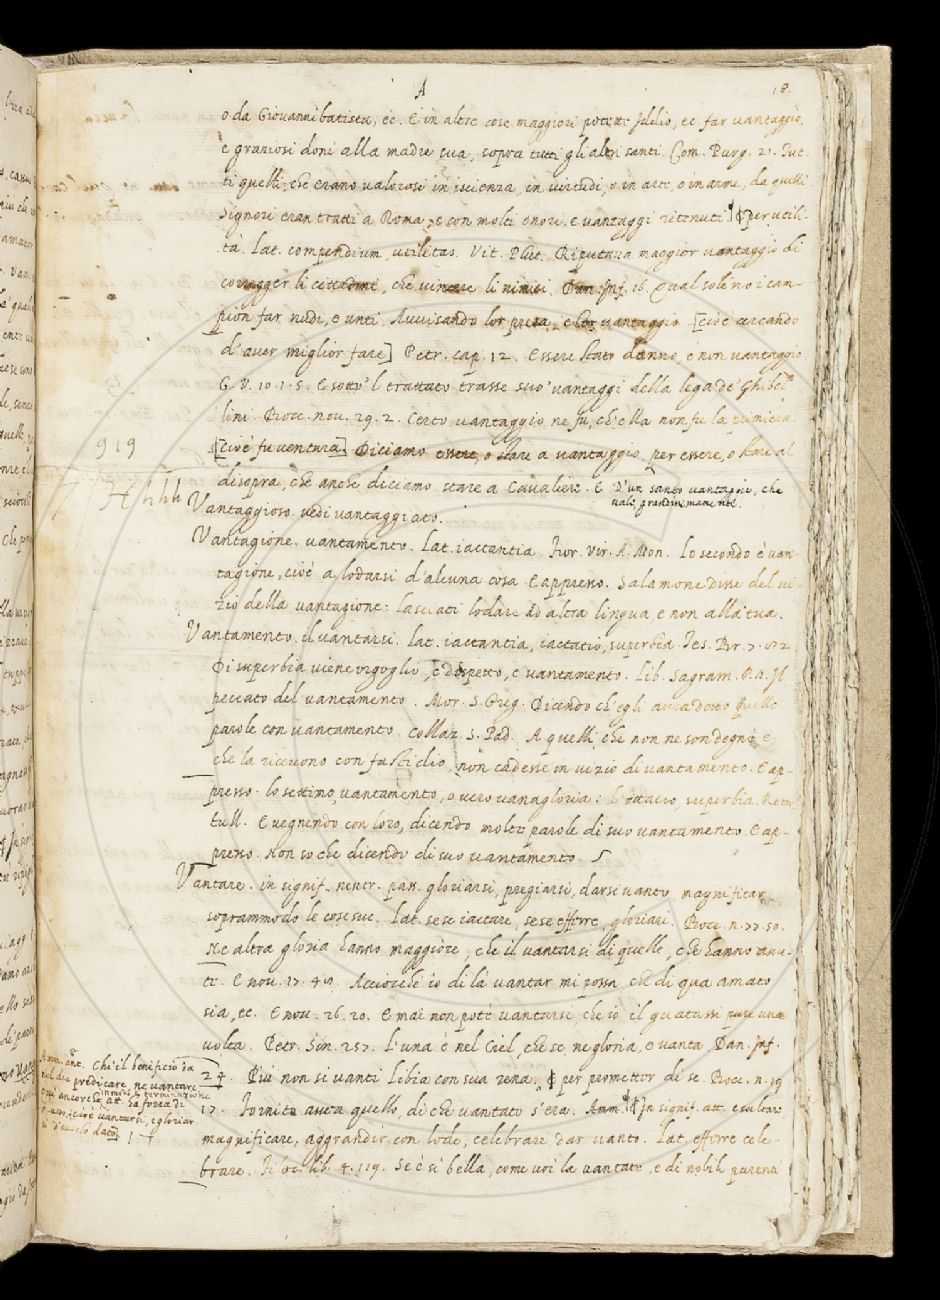 A
18.
o da Giovannibatista, ec. E in altre cose maggiori potette Iddio, ec. far vantaggio,
e graziosi doni alla madre sua, sopra tutti gli altri santi. Com. Purg. 21. Tut-
ti quelli, che erano valorosi in iscienza, in virtudi, o in arte, o in arme, da quelli
Signori eran tratti a Roma, e con molti onori, e vantaggi ritenuti. ¶ per utili-
tà. Lat. compendium, utilitas. Vit. Plut. Riputava maggior vantaggio di
corregger li cittadini, che vincere li nimici. Dan. Inf. 16. Qual soleno i cam-
pion far nudi, e unti, Avvisando lor presa, e lor vantaggio [cioè cercando
d'aver miglior fare] Petr. cap. 12. Essere stato danno, e non vantaggio
G. V. 10. 1. 5. E sotto 'l trattato trasse suo' vantaggi della lega de' Ghibel-
lini. Bocc. nov. 29. 2. Certo vantaggio ne fu, ch' ella non fu la primiera
919
[cioè fu ventura]. Diciamo essere, o stare a vantaggio, per essere, o stare al
disopra, che anche diciamo stare a Cavaliere. E D'un santo vantaggio, che
vale, grandissimamente.
Hhhh
Vantaggioso. vedi vantaggiato.
Vantagione. vantamento. Lat. iactantia. Fior. Vir. A. Mon. Lo secondo è van-
tagione, cioè a lodarsi d'alcuna cosa. E appresso. Salamone disse del vi-
zio della vantagione: lasciati lodare ad altra lingua, e non alla tua.
Vantamento. il vantarsi. Lat. iactantia, iactatio, superbia. Tes. Br. 7. 82.
Di superbia viene orgoglio, e dispetto, e vantamento. Lib. Sagram. P. N. Il
peccato del vantamento. Mor. S. Greg. Dicendo ch'egli avea detto quelle
parole con vantamento. Collaz. S. Pad. A quelli, che non ne son degni, e
che la ricevono con fastidio, non cadesse in vizio di vantamento. E ap-
presso. lo settimo, vantamento, o vero vanagloria: l'ottavo, superbia. Rett.
Tull. E vegnendo con loro, dicendo molte parole di suo vantamento. E ap-
presso. Non so che dicendo di suo vantamento.
Vantare. in signif. neutr. pass. gloriarsi, pregiarsi, darsi vanto, magnificar
soprammodo le cose sue. Lat. sese iactare, sese efferre, gloriari. Bocc. n. 77. 50.
Ne altra gloria hanno maggiore, che il vantarsi di quelle, che hanno avu-
te. E nov. 17. 48. Acciocchè io di là vantar mi possa, che di qua amato
sia, ec. E nov. 26. 20. E mai non potè vantarsi, che io il guatassi pure una
volta. Petr. Son. 257. L'una è nel Ciel, che se ne gloria, e vanta. Dan. Inf.
24. Più non si vanti Libia con sua rena. ¶ per prometter di se. Bocc. n. 19
17. Fornito aveva quello, di che vantato s'era. Amm. ¶ In signif. att. esaltare
magnificare, aggrandir con lode, celebrare dar vanto. Lat. efferre cele-
brare. Fi'oc. lib. 4. 119. Se è sì bella, come voi la vantate, e di nobili parenti
Amm. ant. Chi 'l beneficio da
nel dee predicare, ne vantare
qui ancorchè in modo, e terminazione
att. ha forza di
neutr. cioè vantarsi, e gloriar
si d'averlo dato